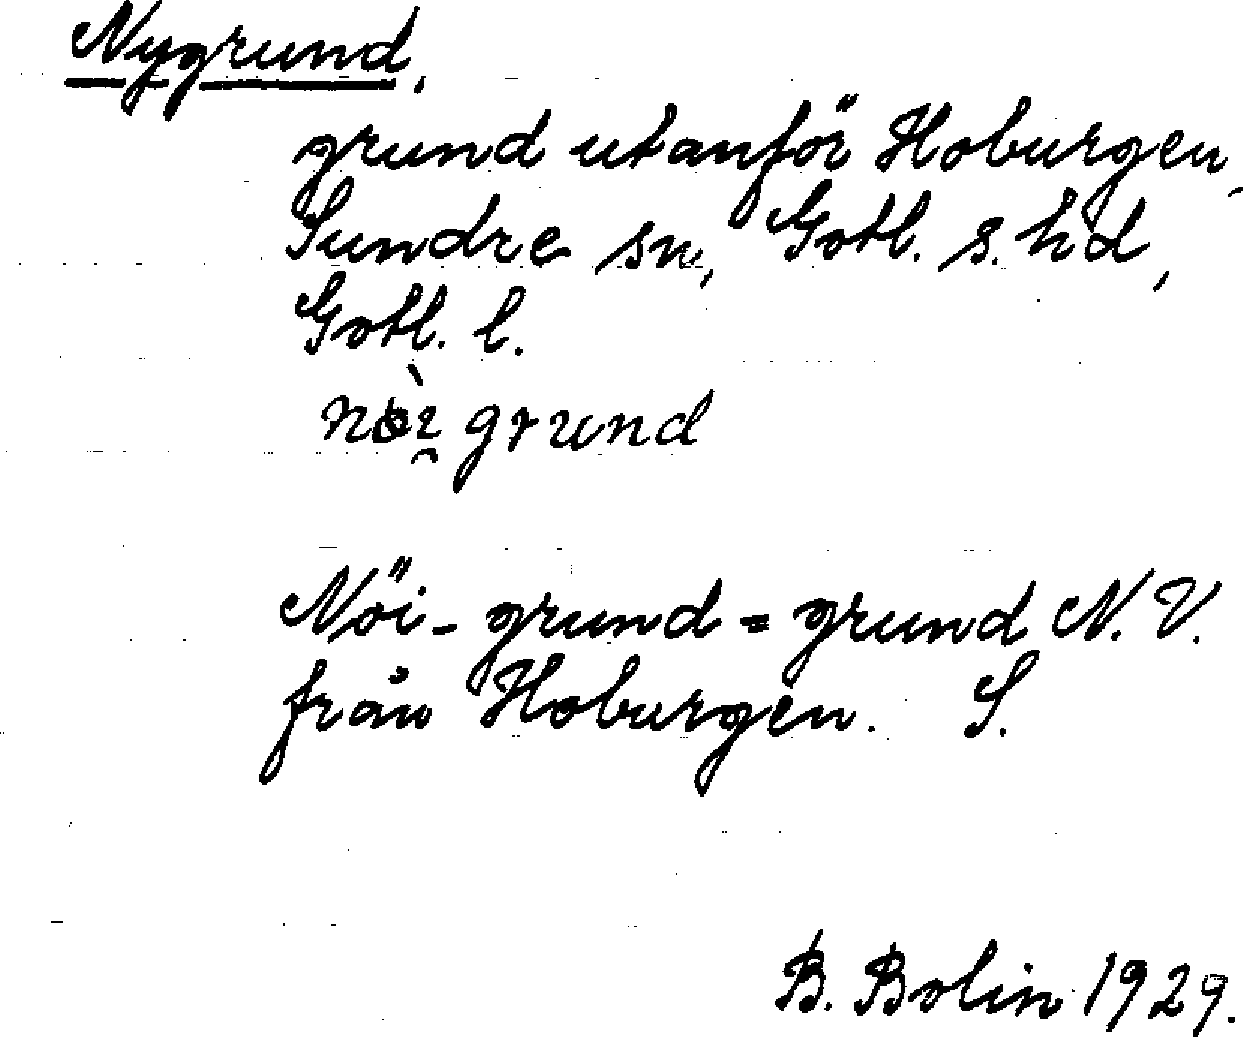 Nygrund,
grund utanför Hoburgen,
Sundre sn, Gotl. s. hd,
Gotl. l.
Nöi-grund = grund N.V.
från Hoburgen. S.
B. Bolin 1929.